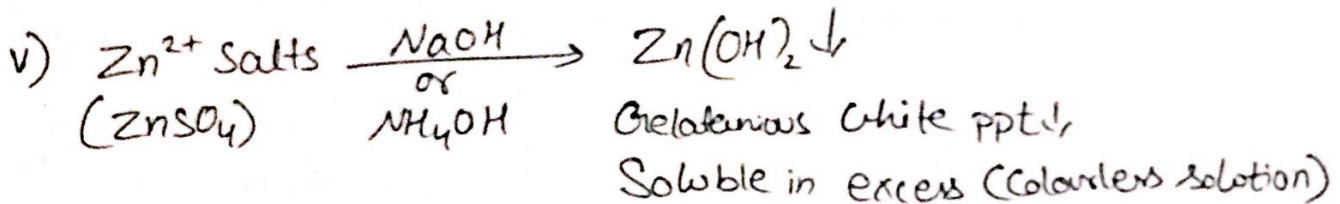 v) Zn²⁺ Salts —NaOH→ Zn(OH)₂ ↓
or
(ZnSO₄) NH₄OH Gelatanious White ppt↓,
Soluble in excess (Colourless solution)